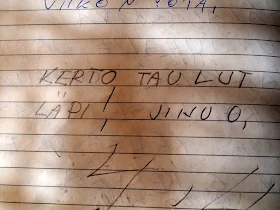 VIIKON
KERTO TAULUT
LÄPI, JINUO,